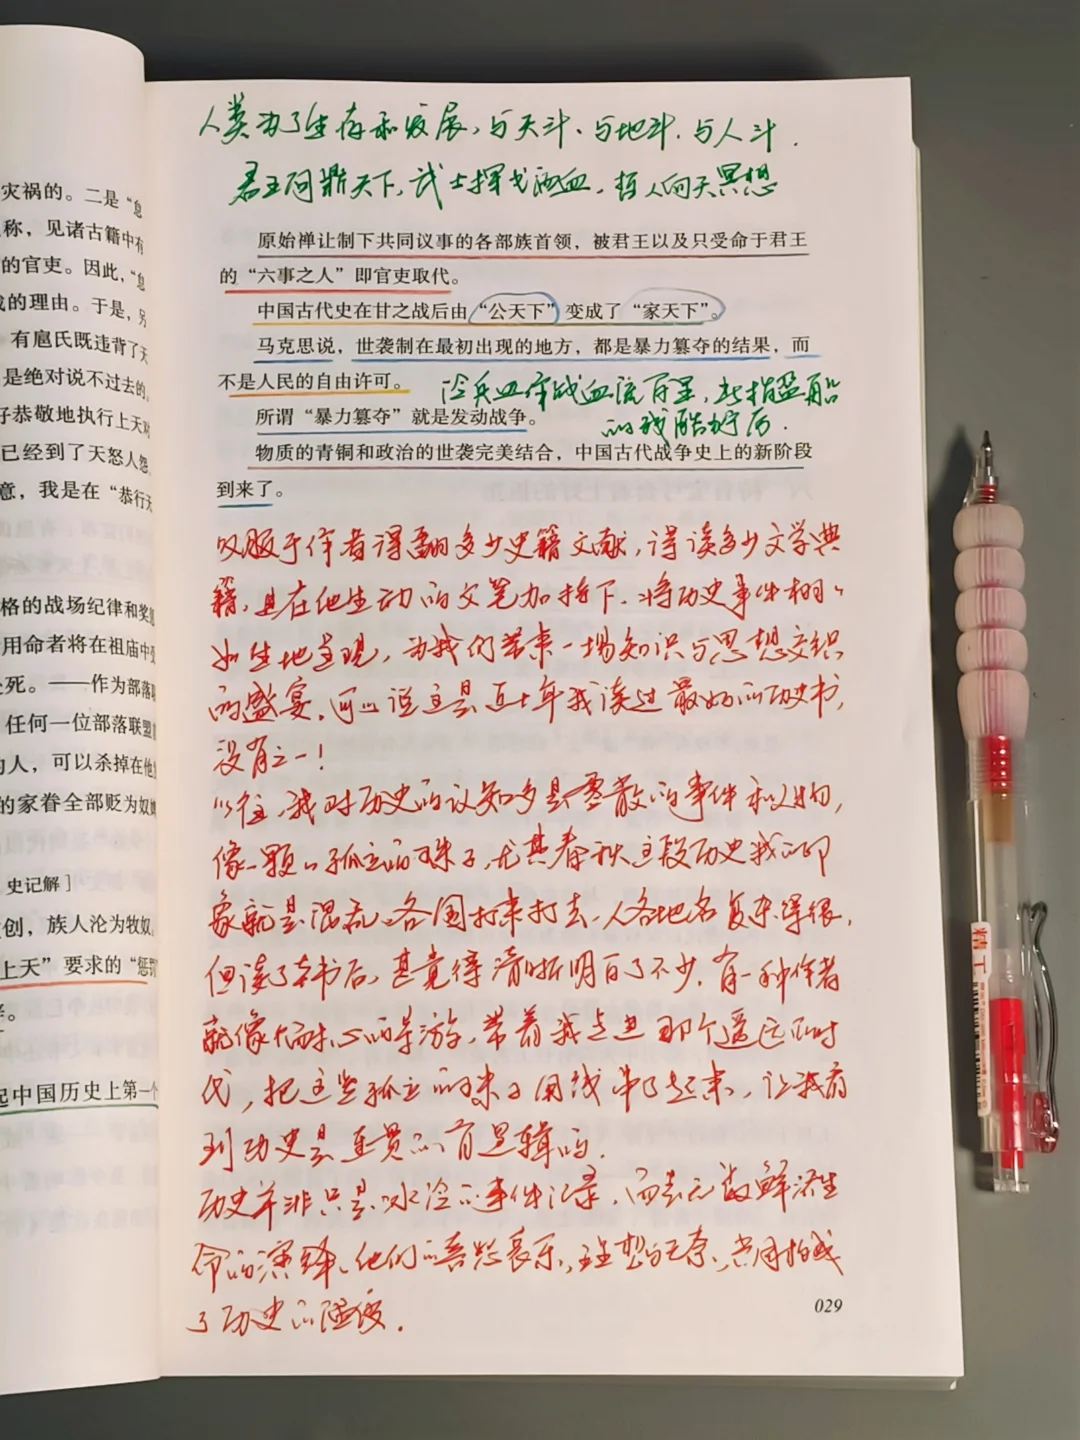 灾祸的。二是“怠
称，见诸古籍中有
的官吏。因此，“怠
的理由。于是，另
有扈氏既违背了天
是绝对说不过去的
好恭敬地执行上天对
已经到了天怒人怨
意，我是在“恭行天
格的战场纪律和奖
用命者将在祖庙中受
死。——作为部落联
任何一位部落联盟
的人，可以杀掉在他
的家眷全部贬为奴
史记解］
创，族人沦为牧奴
上天”要求的“惩罚
起中国历史上第一个
人类为了生存和发展，与天斗、与地斗、与人斗．
君王问鼎天下，武士挥戈洒血，哲人问天冥想
原始禅让制下共同议事的各部族首领，被君王以及只受命于君王
的“六事之人”即官吏取代。
中国古代史在甘之战后由“公天下”变成了“家天下”。
马克思说，世袭制在最初出现的地方，都是暴力篡夺的结果，而
不是人民的自由许可。
冷兵器作战血流百里，
的残酷
所谓“暴力篡夺”就是发动战争。
物质的青铜和政治的世袭完美结合，中国古代战争史上的新阶段
到来了。
叹服于作者得翻多少史籍文献，得读多少文学典
籍，且在他生动的文笔加持下，将历史事件栩々
如生地呈现，为我们带来一场知识与思想交织
的盛宴，可以说这是近十年我读过最好的历史书，
没有之一！
以往，我对历史的认知多是零散的事件和人物，
像一颗々孤立的珠子，尤其春秋这段历史我的印
象就是混乱，各国打来打去，人名地名复杂得很，
但读了本书后，甚觉得清晰明白了不少，有一种作者
就像个耐心的导游，带着我走进那个遥远的时
代，把这些孤立的珠子用线串了起来，让我看
到历史是连贯的有逻辑的．
历史并非只是冰冷的事件记录，而是无数鲜活生
命的演绎、他们的喜怒哀乐，理想与无奈，共同构成
了历史的温度．
029
精工